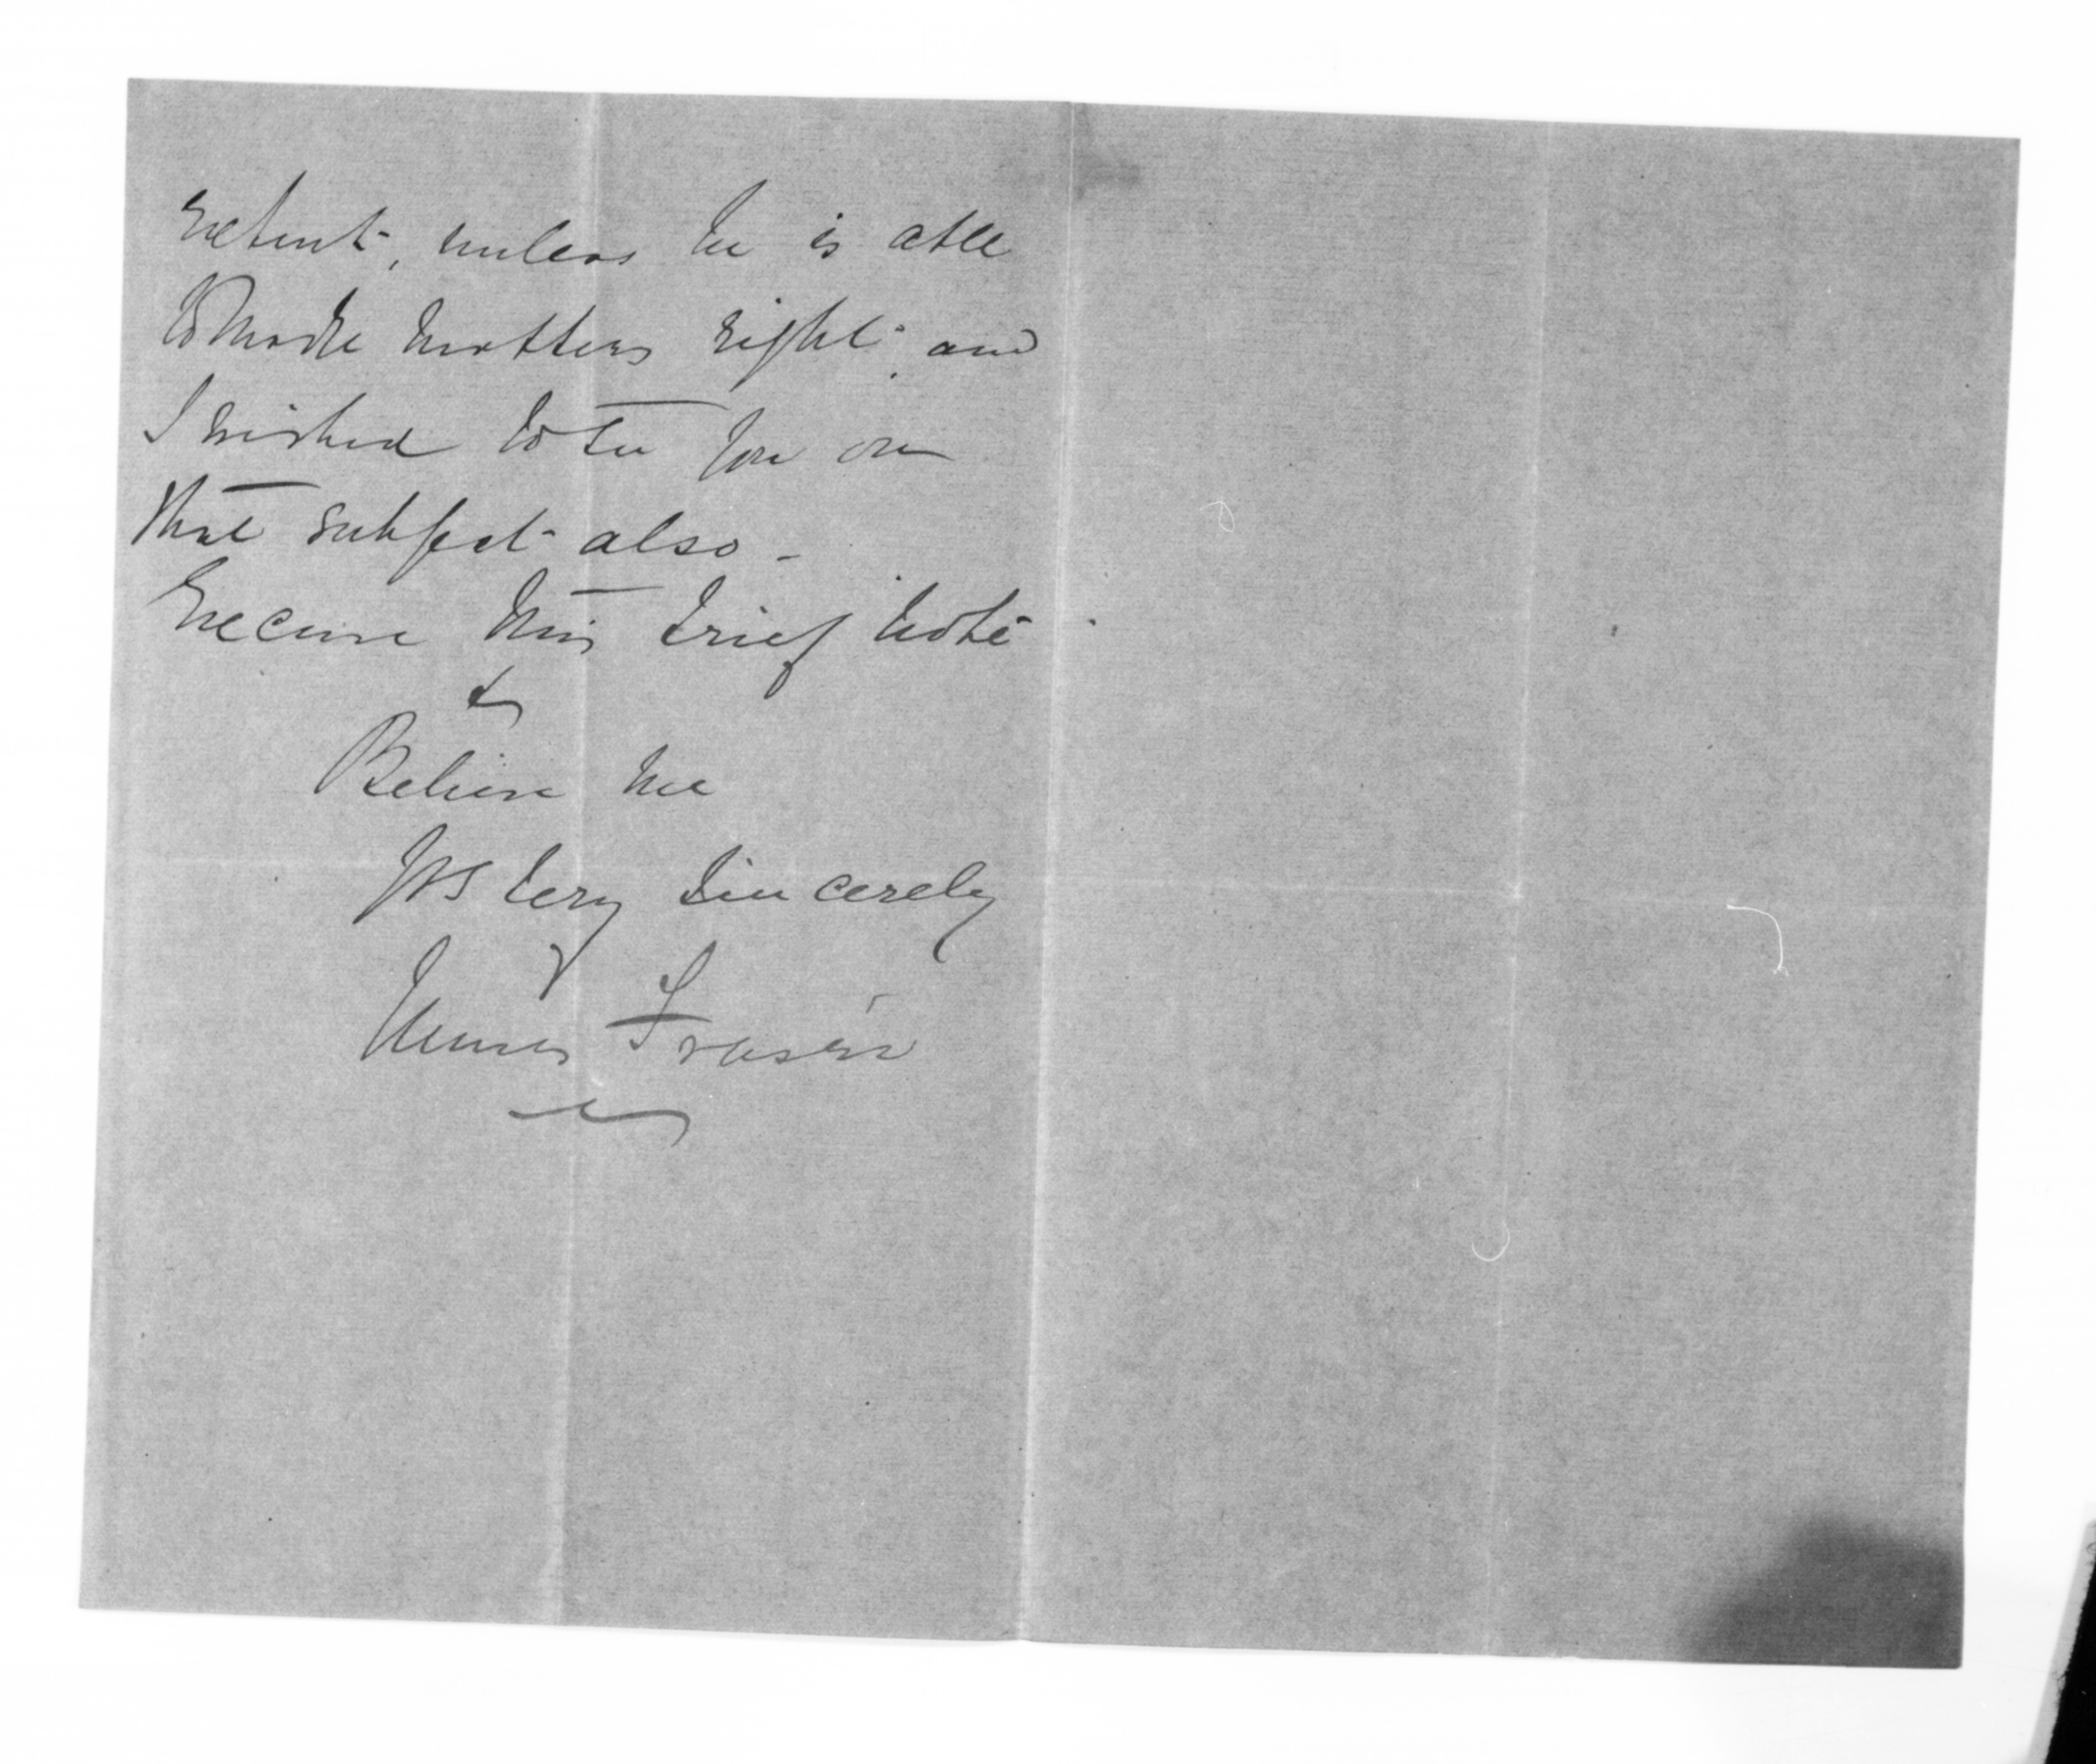 extent, unless he is able
to make matters right and
I wished to see you on
that subject also -
Excuse this brief note
&
Believe me
Yrs very sincerely
Fraser